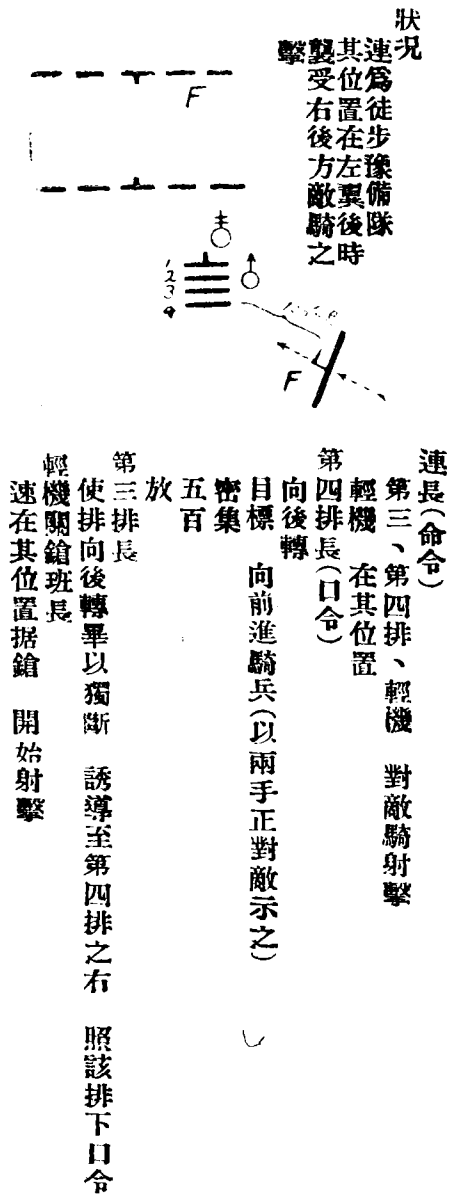 狀況
連爲徒步豫備隊
其位置在左翼後時
襲受右後方敵騎之
擊
F
1
2
3
F
連長(命令)
第三、第四排、輕機 對敵騎射擊
輕機 在其位置
第四排長(口令)
向後轉
目標 向前進騎兵(以兩手正對敵示之)
密集
五百
放
第三排長
使排向後轉畢以獨斷 誘導至第四排之右 照該排下口令
輕機關鎗班長
速在其位置据鎗 開始射擊